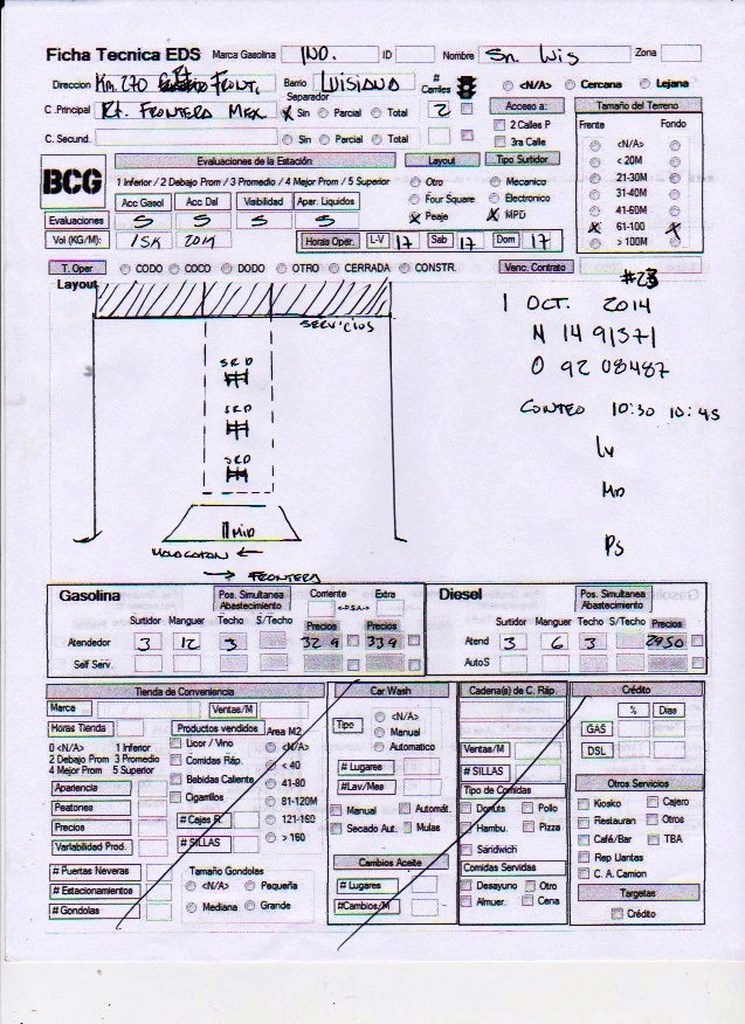 Ficha Tecnica EDS Marca Gasolina IND. ID Nombre Sn. Luis Zona
Direccion Km. 270 Rt. FRONT. Barrio LUISIANA # Carriles <N/A> Cercana Lejana
C .Principal Rt. FRONTERA MEX. Separador X Sin Parcial Total 2 Acceso a: Tamaño del Terreno
C. Secund. Sin Parcial Total 2 Calles P 3ra Calle Frente Fondo
BCG Evaluaciones de la Estación Layout Tipo Surtidor <N/A>
1 Inferior / 2 Debajo Prom / 3 Promedio / 4 Mejor Prom / 5 Superior Otro Mecanico < 20M
Acc Gasol Acc Dsl Visibilidad Apar. Liquidos Four Square Electronico 21-30M
Evaluaciones 5 5 5 5 X Peaje X MPD 31-40M
41-60M
Vol (KG/M): 15K 2014 Horas Oper. L-V 17 Sab 17 Dom 17 X 61-100 X
> 100M
T. Oper CODO COCO DODO OTRO CERRADA CONSTR. Venc. Contrato
Layout #23
SERVICIOS
1 OCT. 2014
N 14 91371
O 92 08487
CONTEO 10:30 10:45
SRD
SRD
SRD
MID
Lv
MD
Ps
←
→ FRONTERA
Gasolina Pos. Simultanea Abastecimiento Corriente Extra
<-P.S.A.->
Surtidor Manguer Techo S/Techo Precios Precios
Atendedor 3 12 3 32 9 33 9
Self Serv.
Diesel Pos. Simultanea Abastecimiento
Surtidor Manguer Techo S/Techo Precios
Atend 3 6 3 2950
AutoS
Tienda de Conveniencia
Marca Ventas/M
Horas Tienda Productos vendidos Area M2
0 <N/A> 1 Inferior Licor / Vino <N/A>
2 Debajo Prom 3 Promedio Comidas Ráp. < 40
4 Mejor Prom 5 Superior Bebidas Caliente 41-80
Apariencia Cigarrillos 81-120M
Peatones # Cajas R. 121-160
Precios # SILLAS > 160
Variabilidad Prod.
# Puertas Neveras Tamaño Gondolas
# Estacionamientos <N/A> Pequeña
# Gondolas Mediana Grande
Car Wash
Tipo <N/A>
Manual
Automatico
# Lugares
#Lav/Mes
Manual Automát.
Secado Aut. Mulas
Cambios Aceite
# Lugares
#Cambios/M
Cadena(s) de C. Ráp.
Ventas/M
# SILLAS
Tipo de Comidas
Donuts Pollo
Hambu. Pizza
Sandwich
Comidas Servidas
Desayuno Otro
Almuer. Cena
Crédito
% Dias
GAS
DSL
Otros Servicios
Kiosko Cajero
Restauran Otros
Café/Bar TBA
Rep Llantas
C. A. Camion
Targetas
Crédito